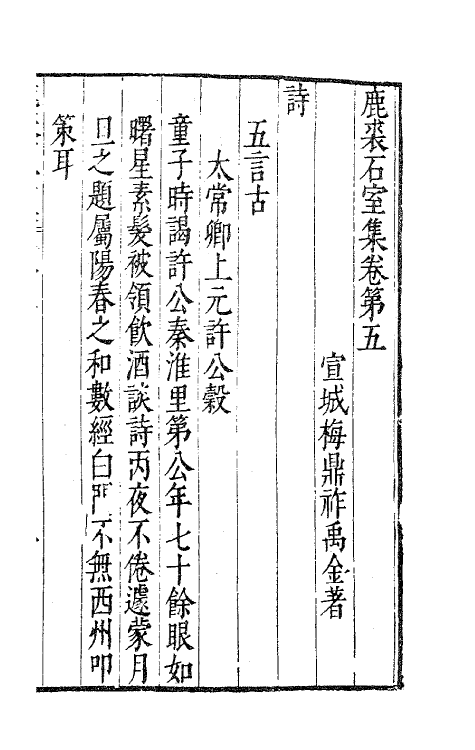 鹿裘石室集卷第五
宣城梅鼎祚禹金著
詩
五言古
太常卿上元許公穀
童子時謁許公秦淮里第公年七十餘眼如
曙星素髮被領飲酒談詩丙夜不倦遽蒙月
旦之題屬陽春之和數經白門不無西州叩
策耳